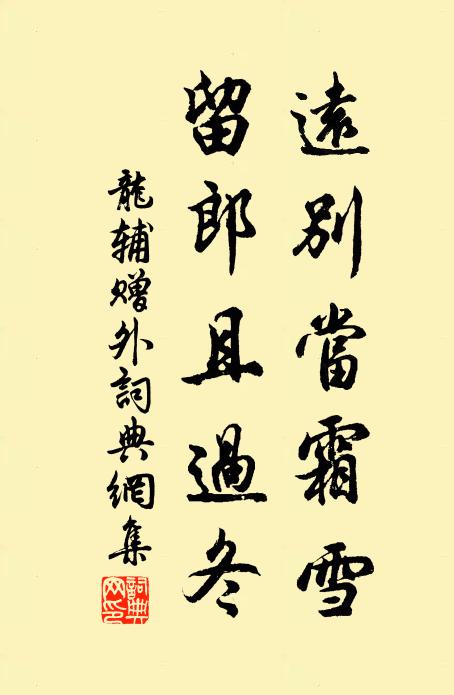 遠別當霜雪
留郎且過冬
龍輔贈外詞典網集
詞典網印